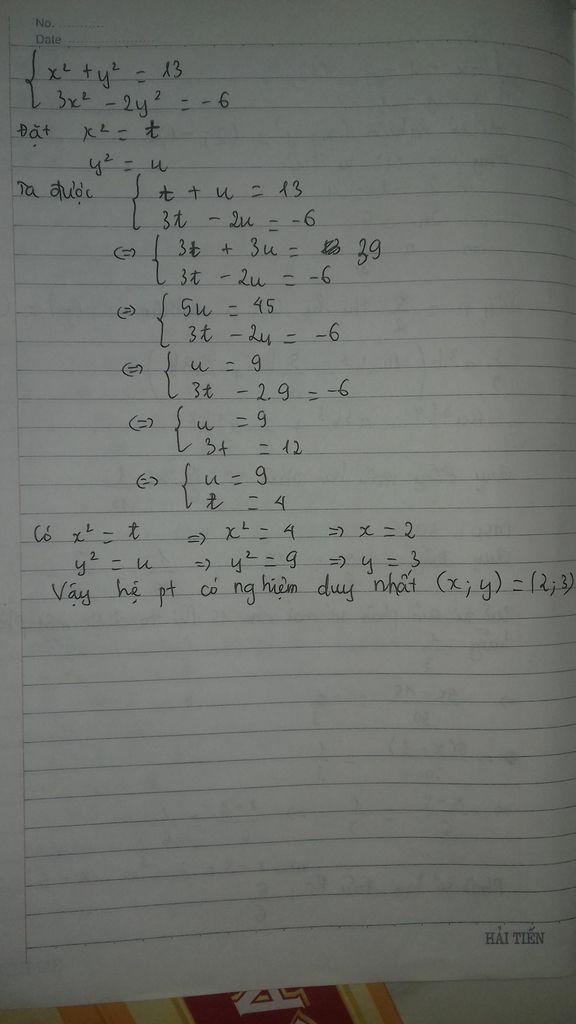 No. ............
Date ........................
{ x² + y² = 13
3x² - 2y² = -6
Đặt x² = t
y² = u
Ta được { t + u = 13
3t - 2u = -6
<=> { 3t + 3u = 39
3t - 2u = -6
<=> { 5u = 45
3t - 2u = -6
<=> { u = 9
3t - 2.9 = -6
<=> { u = 9
3t = 12
<=> { u = 9
t = 4
Có x² = t => x² = 4 => x = 2
y² = u => y² = 9 => y = 3
Vậy hệ pt có nghiệm duy nhất (x; y) = (2; 3)
HẢI TIẾN